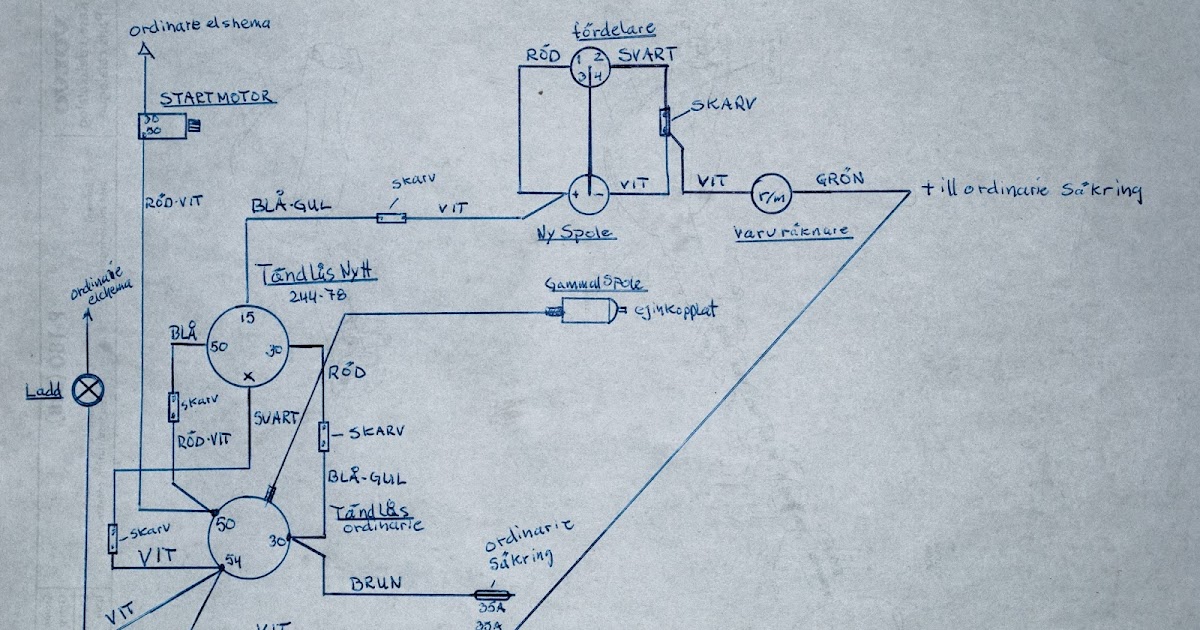 ordinare elshema
fördelare
RÖD
1 2
3 4
SVART
STARTMOTOR
30
50
SKARV
RÖD-VIT
BLÅ-GUL
skarv
VIT
+
-
VIT
VIT
r/m
GRÖN
till ordinarie säkring
Ny Spole
Varvräknare
ordinarie
elchema
Tändlås Nytt
244-78
Gammal Spole
ejinkopplat
15
BLÅ
50
30
X
RÖD
Ladd
skarv
SVART
SKARV
RÖD-VIT
BLÅ-GUL
Tändlås
ordinarie
50
30
skarv
VIT
54
ordinarie
säkring
BRUN
35A
35A
VIT
VIT